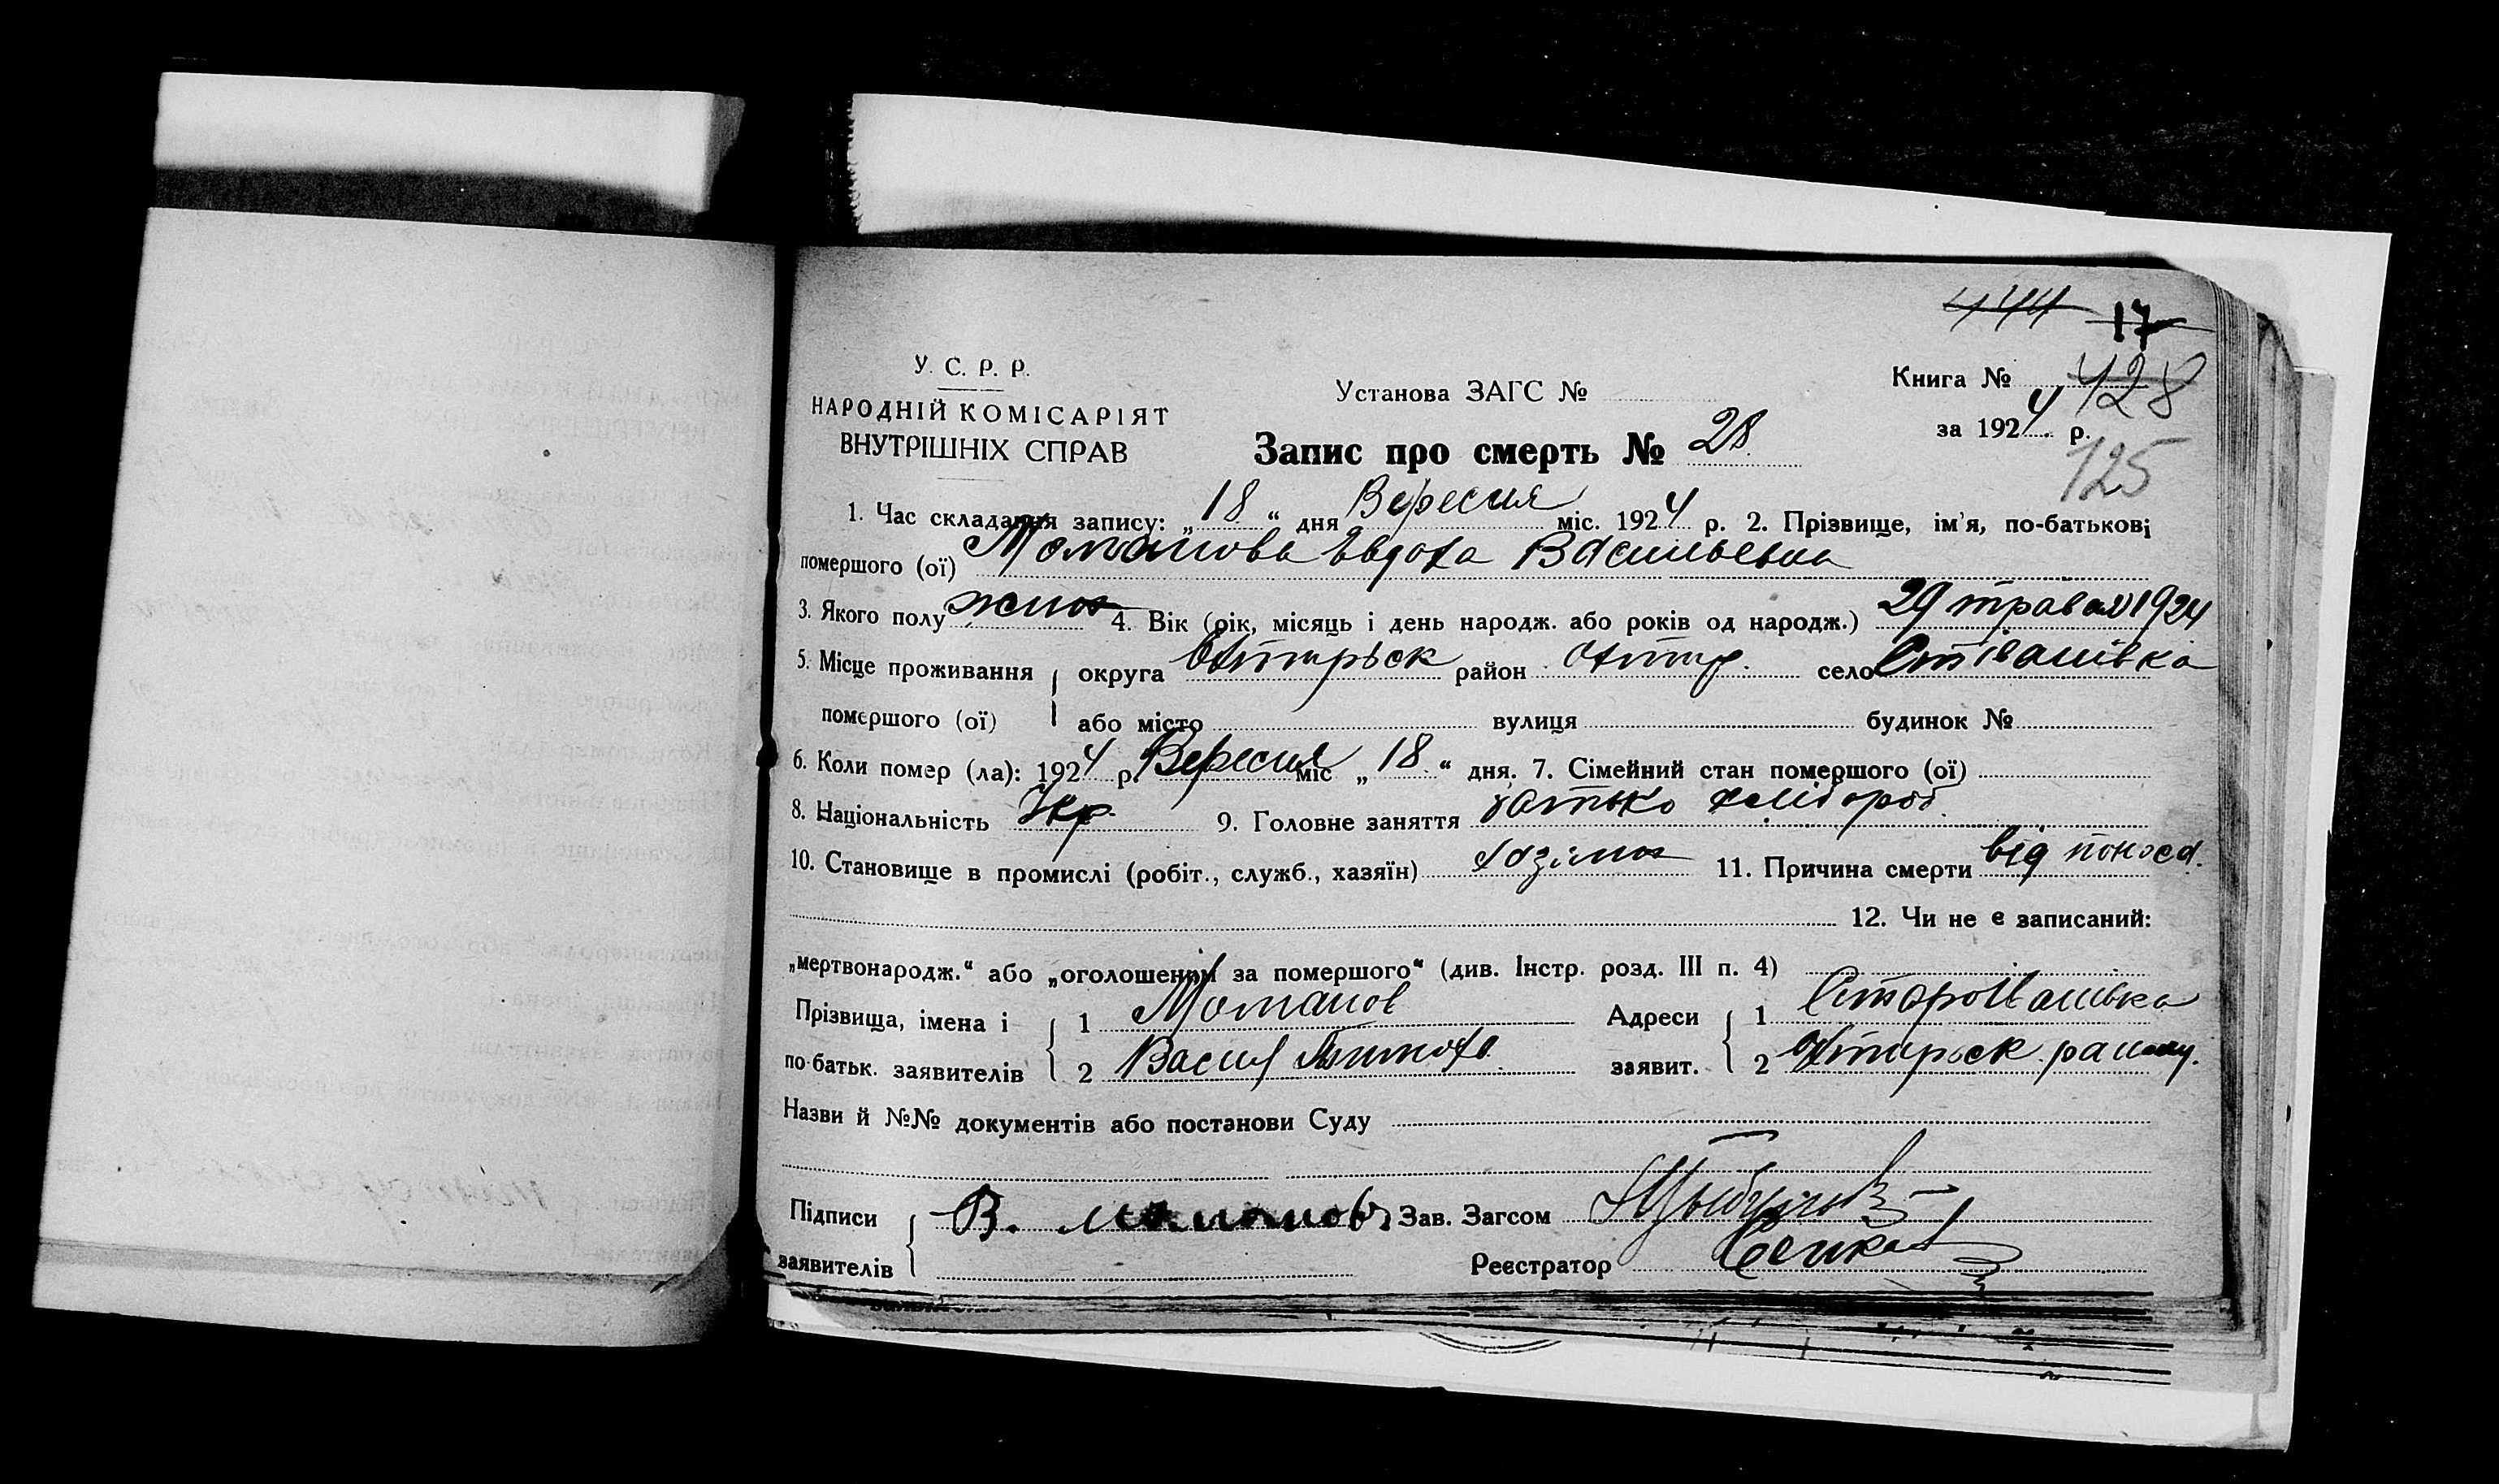 444 17
У. С. Р. Р.
НАРОДНІЙ КОМІСАРІЯТ
ВНУТРІШНІХ СПРАВ
Установа ЗАГС №
Книга № 428
за 1924 р.
125
Запис про смерть № 28
1. Час складання запису: „ 18 “ дня Вересня міс. 1924 р. 2. Прізвище, ім'я, по-батькові
помершого (ої) Евдоха Васильевна
3. Якого полу жіноч 4. Вік (рік, місяць і день народж. або років од народж.) 29 травня 1924
5. Місце проживання округа Охтирьск район Охтир. село Ст Івашівка
помершого (ої) або місто вулиця будинок №
6. Коли помер (ла): 1924 р. Вересня міс „ 18 “ дня. 7. Сімейний стан помершого (ої)
8. Національність Укр. 9. Головне заняття батько хлібороб
10. Становище в промислі (робіт., служб., хазяїн) 11. Причина смерти від поноса.
12. Чи не є записаний:
„мертвонародж.“ або „оголошений за помершого“ (див. Інстр. розд. III п. 4)
Прізвища, імена і 1 Адреси 1 СтароИвашівка
по-батьк. заявителів 2 Васил Тимохв. заявит. 2 Охтирьск району.
Назви й №№ документів або постанови Суду
Підписи В. Зав. Загсом
заявителів Реєстратор